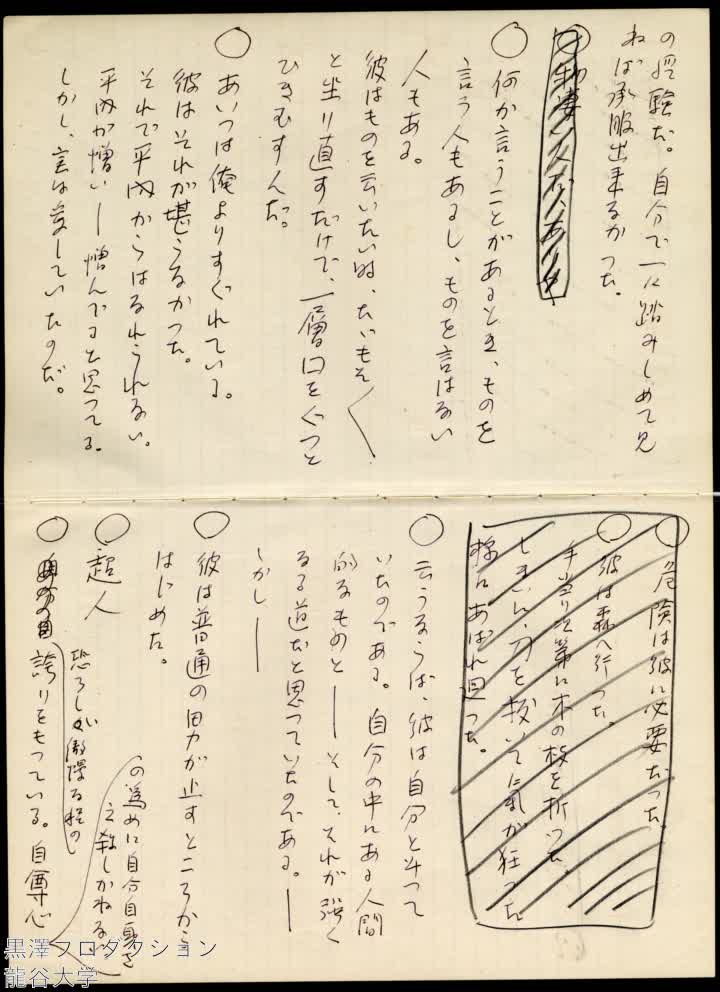 の経験だ。自分で一度踏みしめて見
ねば承服出来なかつた。
何か言うことがあるとき、ものを
言う人もあるし、ものを言はない
人もある。
彼はものを云いたい時、たいもそ〱
と坐り直すだけで、一層口をぐつと
ひきむすんだ。
あいつは俺よりすぐれている。
彼はそれが堪えうなかつた。
それで平内からはなれられない。
平内が憎い―憎んでると思つてる。
しかし、実は愛していたのだ。
危険は彼に必要だつた。
彼は森へ行つた。
手当り次第に木の枝を折つた。
しまいに、刀を抜いて気が狂つた
様にあばれ廻つた。
云うならば、彼は自分と斗つて
いたのである。自分の中にある人間
的なものと――そして、それが強く
なる道だと思つていたのである。――
しかし――
彼は普通の男が止すところから
はじめた。
超人
恐ろしい傲慢な程の
誇りをもつている。自尊心
の為めに自分自身さ
え殺しかねない
黒澤プロダクション
龍谷大学